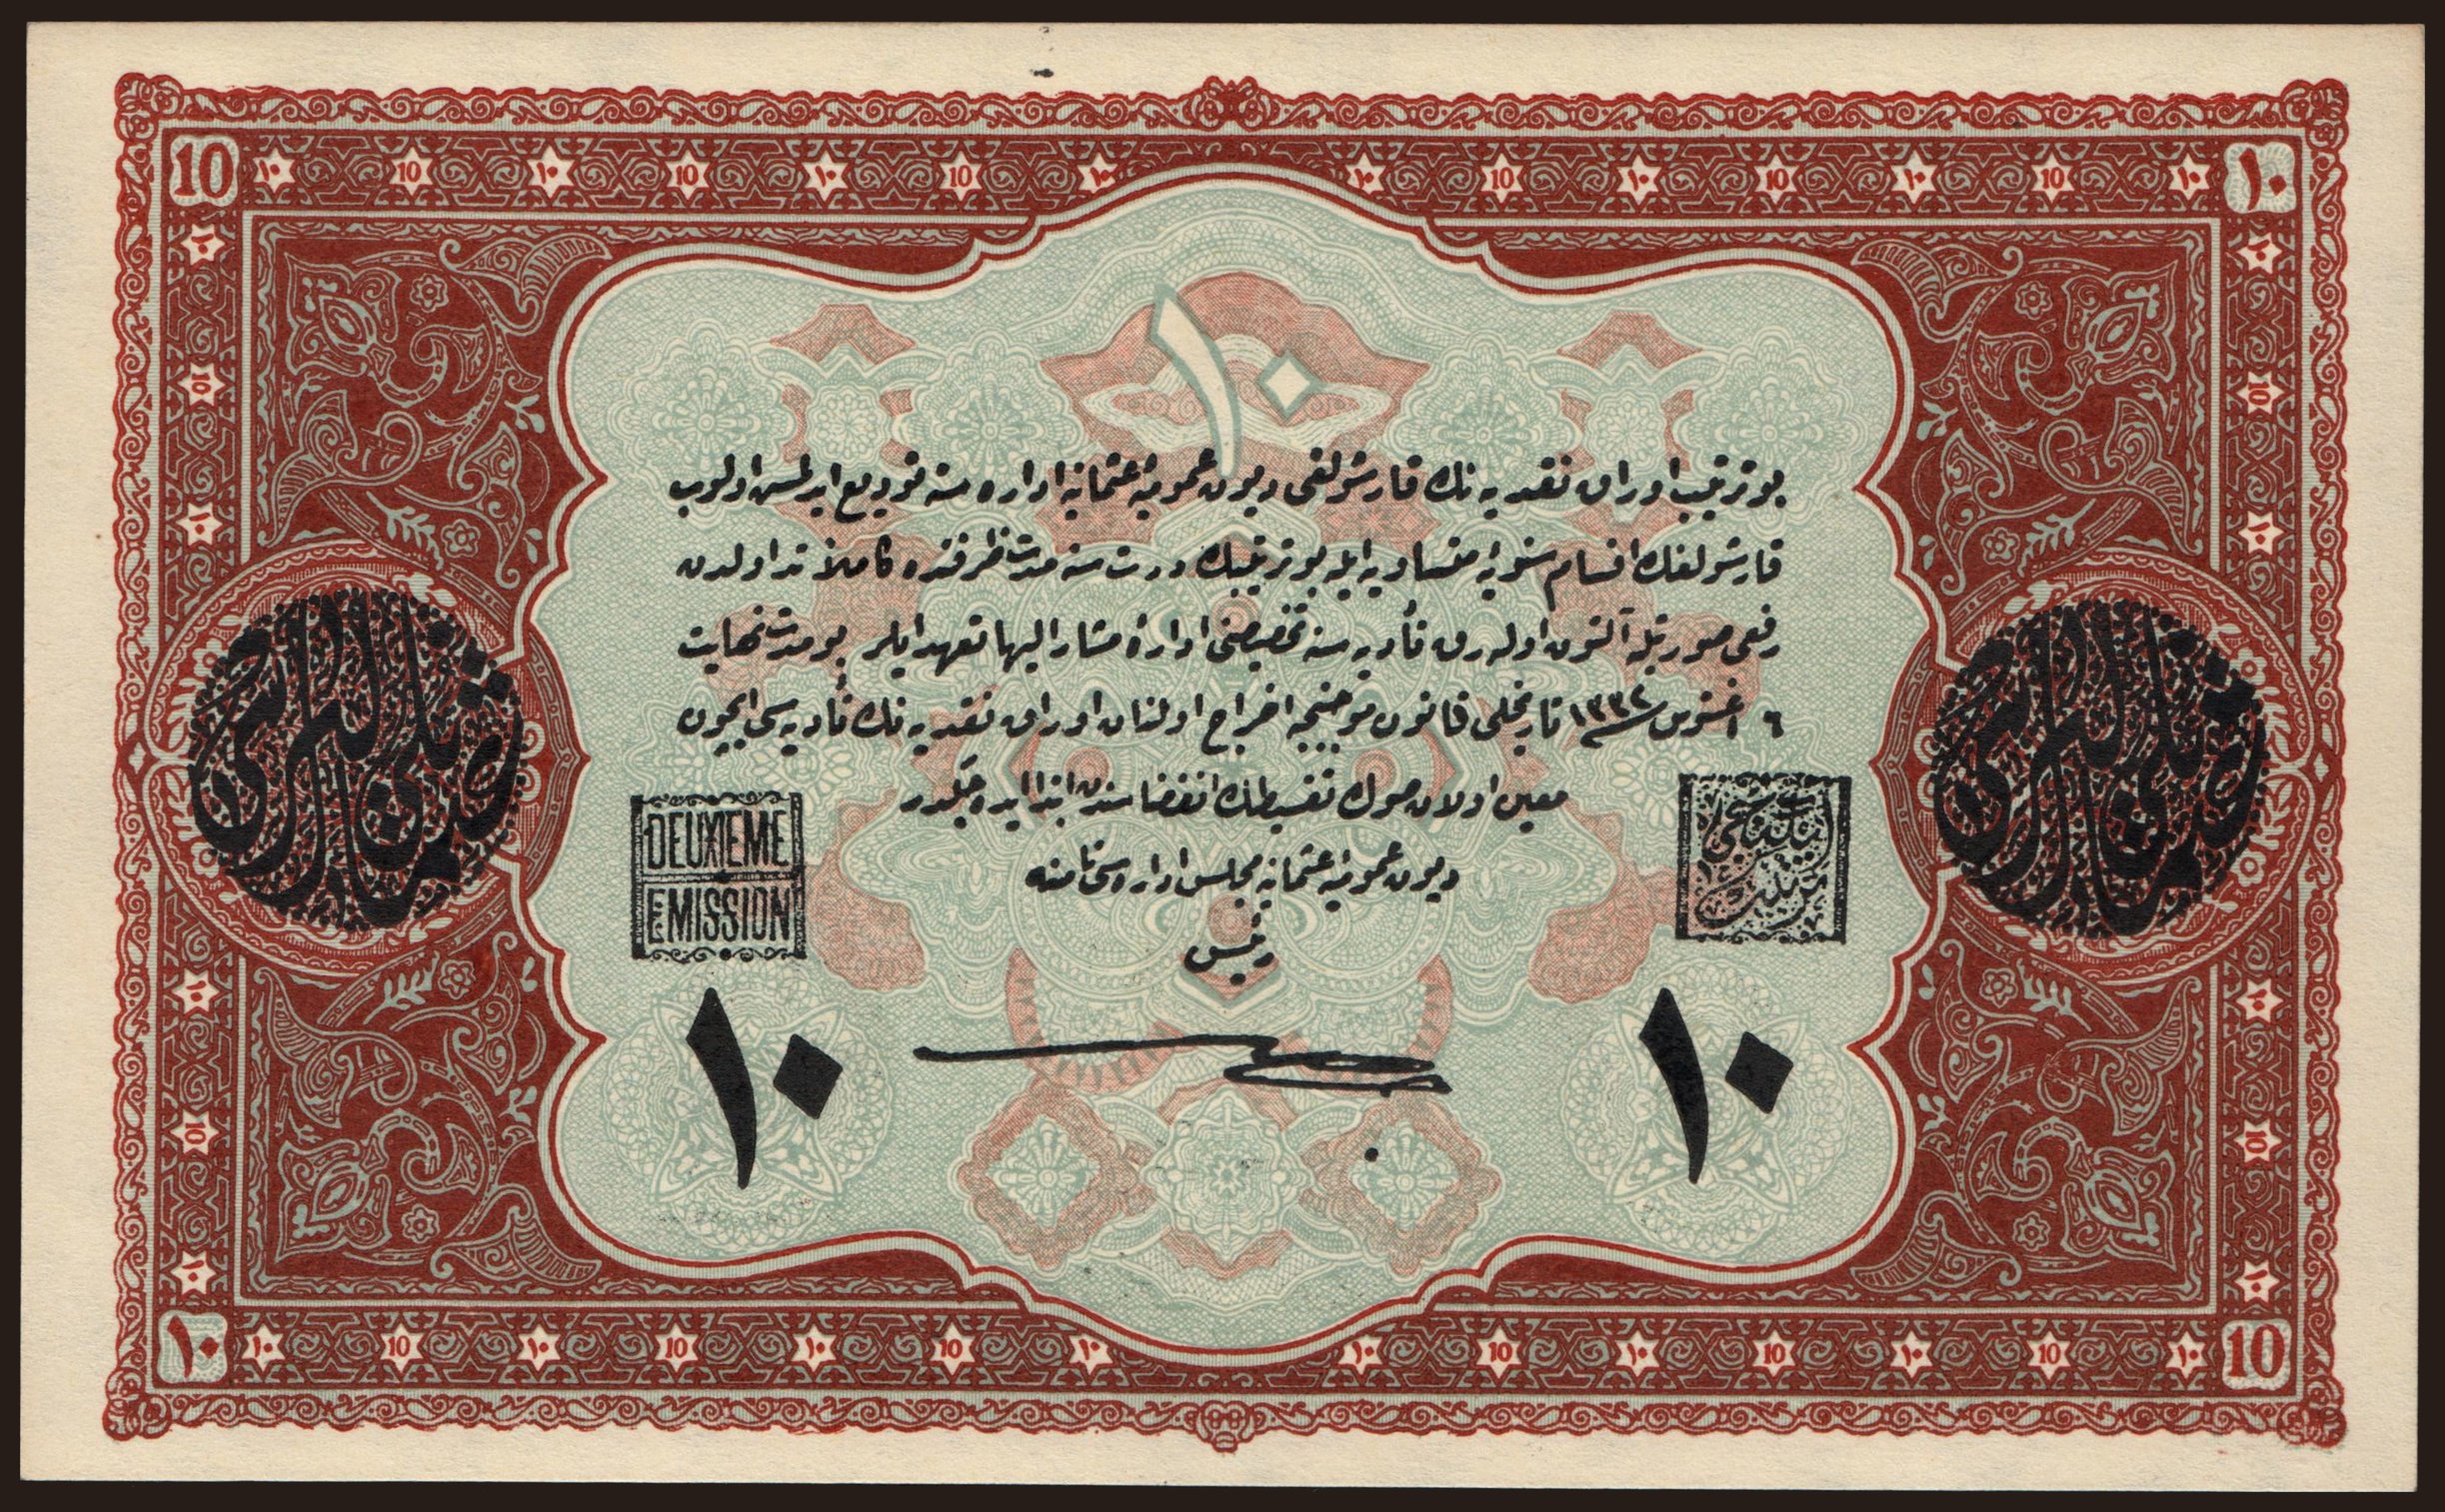 10 ١٠ 10 ١٠ 10 ١٠ 10 ١٠ ١٠ 10 ١٠ 10 ١٠ 10 ١٠ ١٠
١٠
بو ترتیب اوراق نقدیه نك قارشولغی دیون عمومیۀ عثمانیه اداره سنه تودیع ایدلمش اولوب
قارشولغك اقسام سنویۀ متساویه ایله بو ترتیبك درت سنه مدت ظرفنده كاملاً تداولدن
رفعی صورتیله آلتون اوله رق تأدیه سنه تخصیصنی ادارۀ مشار الیها تعهد ایلر بو مدت نهایت
٦ اغستوس ١٣٣٢ تاریخلی قانون موجبنجه اخراج اولنان اوراق نقدیه نك تأدیه سی ایچون
معین اولان صوك تقسیطك انقضاسندن ابتدا ایده جكدر
دیون عمومیۀ عثمانیه مجلس اداره سی نامنه
رئیس
DEUXIEME
EMISSION
ایكنجی
ترتیب
١٠ ١٠
١٠ ١٠ 10 ١٠ 10 ١٠ 10 ١٠ ١٠ 10 ١٠ 10 ١٠ 10 ١٠ 10